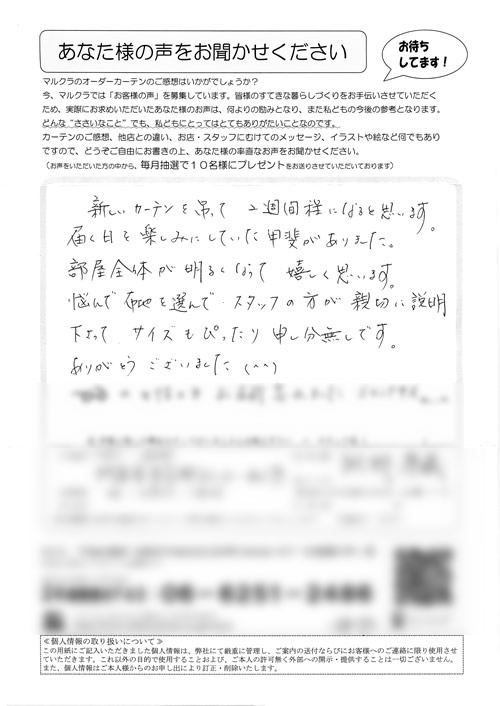 あなた様の声をお聞かせください
お待ち
してます！
マルクラのオーダーカーテンのご感想はいかがでしょうか？
今、マルクラでは「お客様の声」を募集しています。皆様のすてきな暮らしづくりをお手伝いさせていただく
ため、実際にお求めいただいたあなた様のお声は、何よりの励みとなり、また私どもの今後の参考となります。
どんな“ささいなこと”でも、私どもにとってはとてもありがたいことなのです。
カーテンのご感想、他店との違い、お店・スタッフにむけてのメッセージ、イラストや絵など何でもあり
ですので、どうぞご自由にお書きの上、あなた様の率直なお声をお聞かせください。
（お声をいただいた方の中から、毎月抽選で１０名様にプレゼントをお送りさせていただいております）
新しいカーテンを吊って 2週間程になると思います。
届く日を楽しみにしていた甲斐がありました。
部屋全体が明るくなって 嬉しく思います。
悩んで布地を選んで スタッフの方が親切に説明
下さって サイズもぴったり申し分無しです。
ありがとうございました (^^)
≪個人情報の取り扱いについて≫
この用紙にご記入いただきました個人情報は、弊社にて厳重に管理し、ご案内の送付ならびにお客様へのご連絡に限り使用させ
ていただきます。これ以外の目的で使用することおよび、ご本人の許可無く外部への開示・提供することは一切ございません。
また、個人情報はご本人様からのお申し出により訂正・削除いたします。